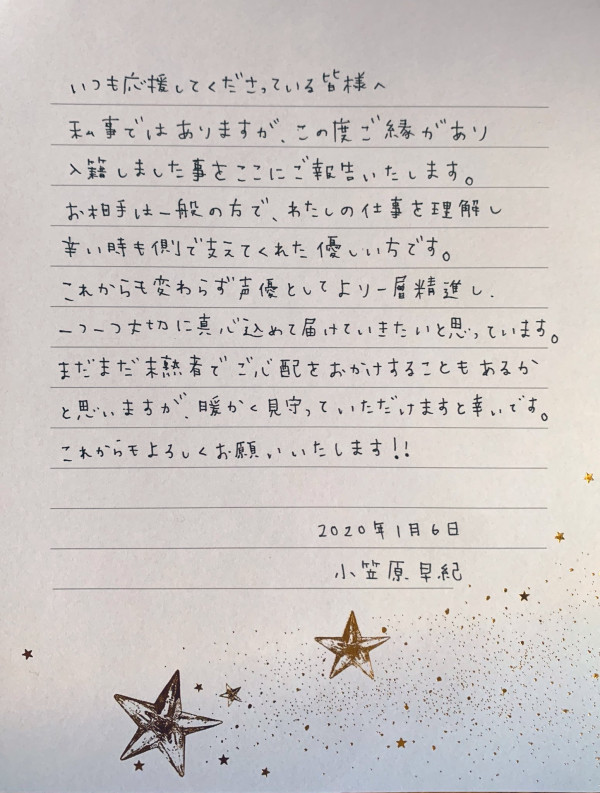 いつも応援してくださっている皆様へ
私事ではありますが、この度ご縁があり
入籍しました事をここにご報告いたします。
お相手は一般の方で、わたしの仕事を理解し
辛い時も側で支えてくれた優しい方です。
これからも変わらず声優としてより一層精進し、
一つ一つ大切に真心込めて届けていきたいと思っています。
まだまだ未熟者でご心配をおかけすることもあるか
と思いますが、暖かく見守っていただけますと幸いです。
これからもよろしくお願いいたします!!
2020年1月6日
小笠原早紀